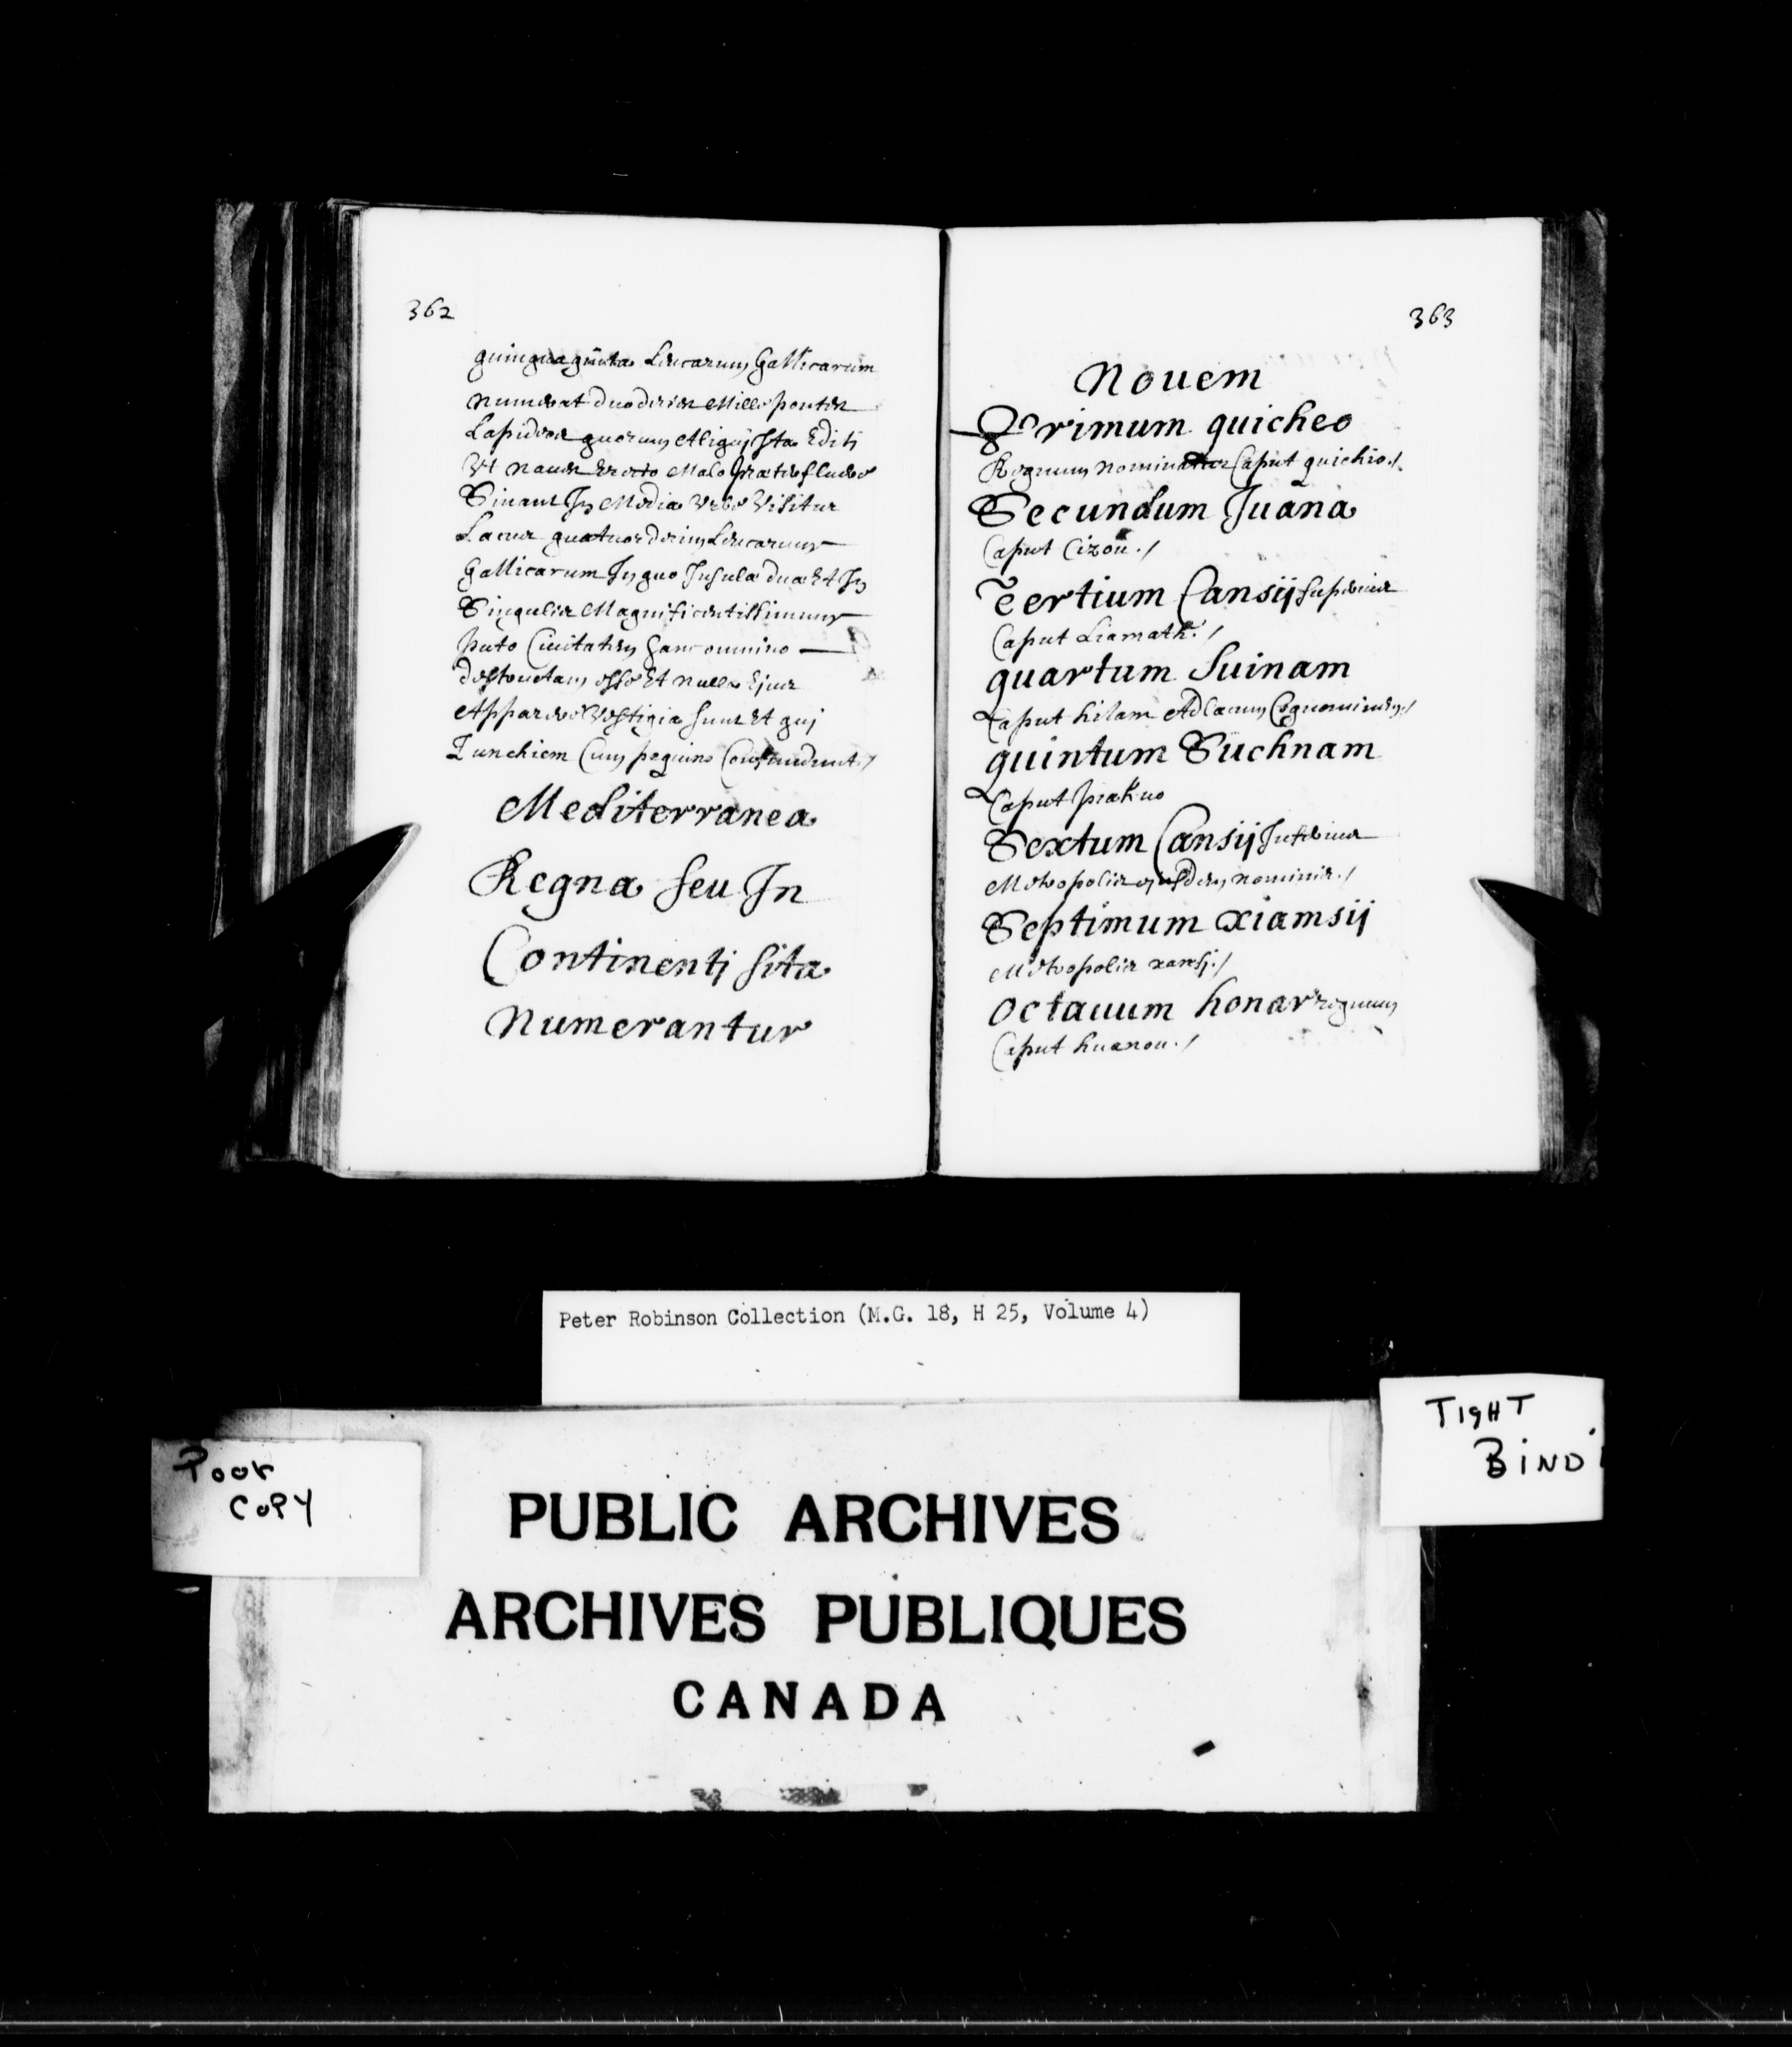 362
quinquaginta Leucarum Gallicarum
numerat duodecies Mille pontes
Lapideos quorum Aliquj Ita Editi
Vt naues Erecto Malo præterfluere
Sinant In Media Vrbe Visitur
Lacus quatuordecim Leucarum
Gallicarum In quo Insulæ duæ Et In
Singulis Magnificentissimum
puto Ciuitatem hanc omnino
destructam esse Et nulla Ejus
Apparere Vestigia sunt Et quj
Cum Confundunt./
Mediterranea
Regna seu In
Continentj sita
Numerantur
363
Nouem
Primum quicheo
Regnum nominatur Caput quichio./
Secundum Juana
Caput Cizou./
Tertium Cansij superius
Caput Liamath./
quartum Suinam
Caput hilam Ad Lacum Cognominem./
quintum Suchnam
Caput
Sextum Cansij Inferius
Metropolis ejusdem nominis./
Septimum xiamsij
Metropolis xansj./
Octauum honar regnum
Caput huanou./
Peter Robinson Collection (M.G. 18, H 25, Volume 4)
Poor
Copy
TigHT
BiNDi
PUBLIC ARCHIVES
ARCHIVES PUBLIQUES
CANADA